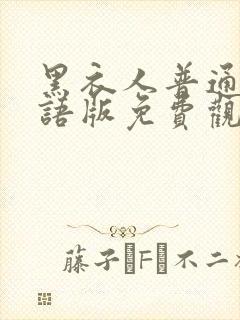 黑衣人普通
語版免費觀
藤子·F·不二